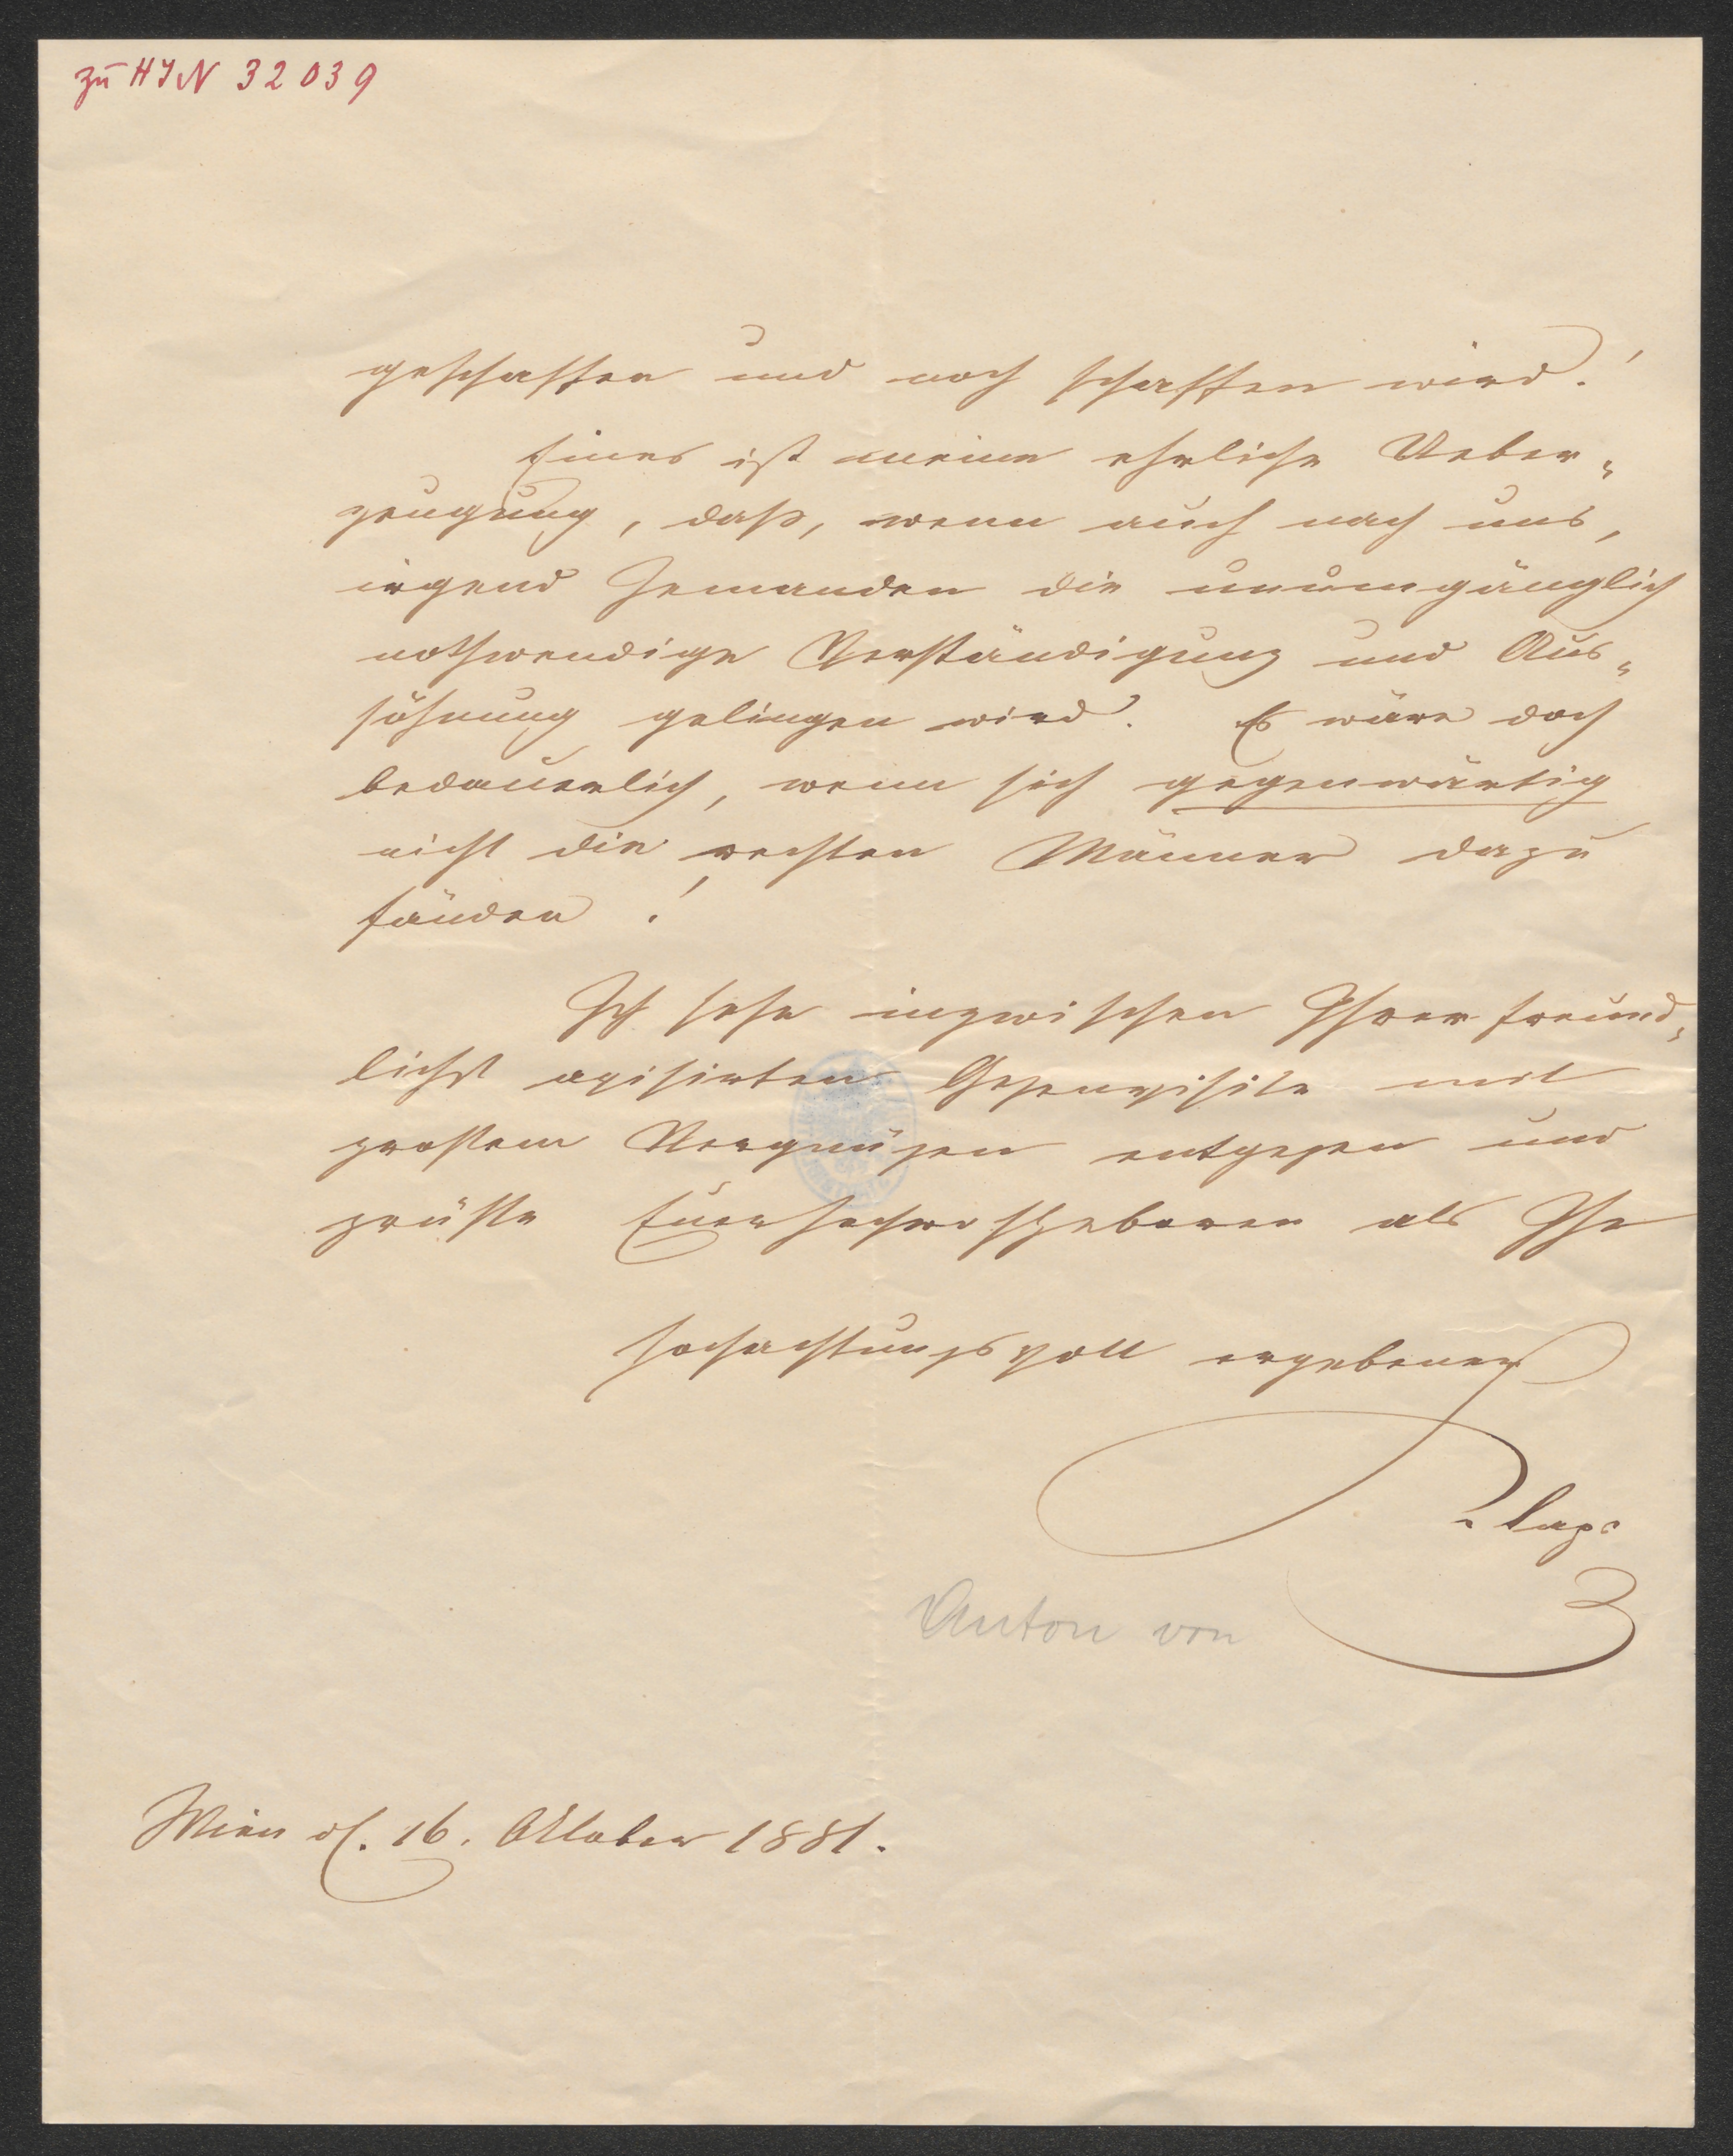 zu HIN 32039
geschaffen und noch schaffen wird!
Eines ist meine ehrliche Ueber„
zeugung, daß, wenn auch nach uns,
irgend Jemanden die unumgänglich
nothwendige Verständigung und Aus„
söhnung gelingen wird. Es wäre doch
bedauerlich, wenn sich gegenwärtig
nicht die rechten Männer dazu
fänden!
Ich sehe inzwischen Ihrer freund„
lichst avisirten Gegenvisite mit
großem Vergnügen entgegen und
grüße Euerhochwohlgeboren als Ihr
hochachtungsvoll ergebener
Anton von
Wien d. 16. Oktober 1881.